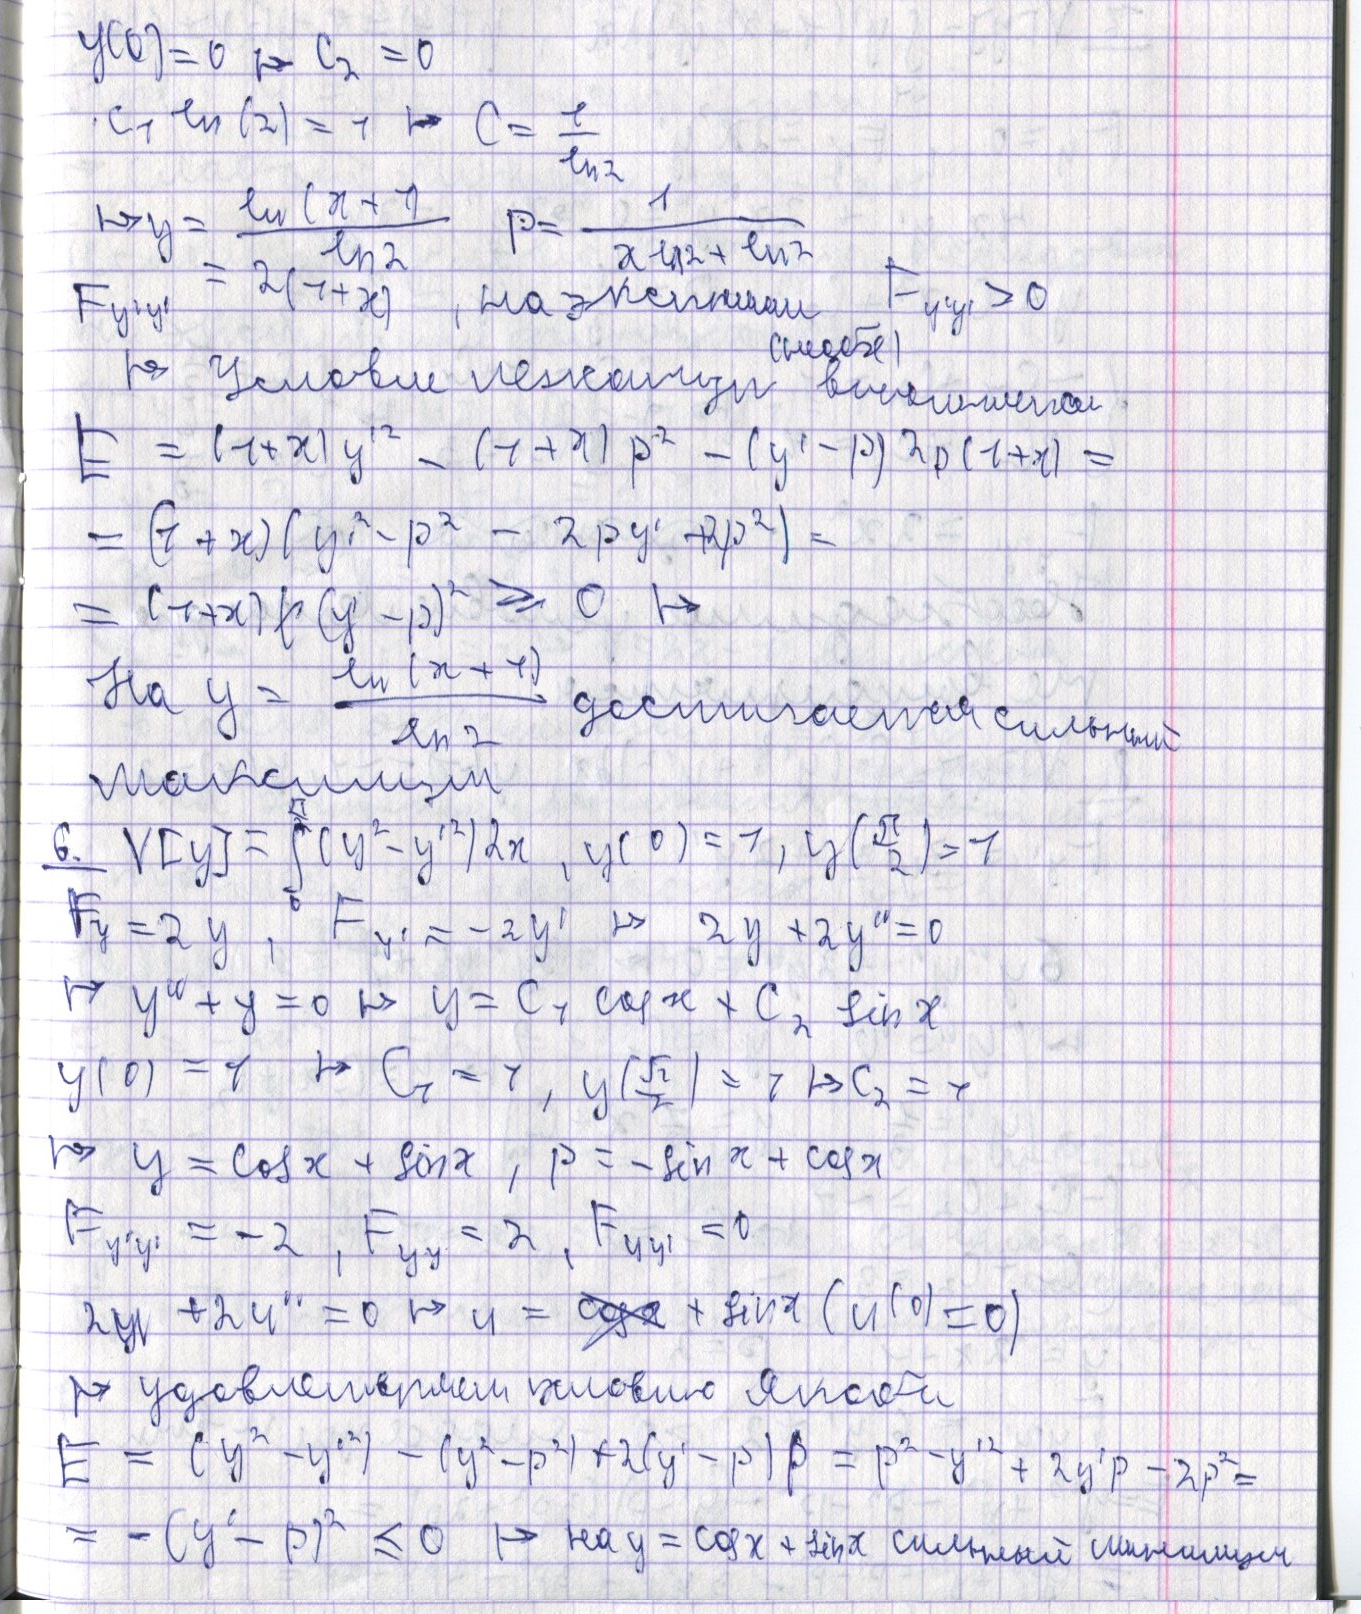 y(0) = 0 ↦ C₂ = 0
C₁ ln(2) = 1 ↦ C = 1/ln2
↦ y = ln(x+1)/ln2   p = 1/(x ln2 + ln2)
F_y'y' = 2(1+x), на экстремали F_y'y' > 0
↦ Условие Лежандра (слабое) выполняется
E = (1+x)y'² - (1+x)p² - (y'-p)2p(1+x) =
= (1+x)(y'² - p² - 2py' + 2p²) =
= (1+x)(y'-p)² ≥ 0 ↦
На y = ln(x+1)/ln2 достигается сильный
максимум
6. V[y] = ∫₀^{π/2} (y² - y'²)2x, y(0) = 1, y(π/2) = 1
F_y = 2y, F_y' = -2y' ↦ 2y + 2y'' = 0
↦ y'' + y = 0 ↦ y = C₁ cos x + C₂ sin x
y(0) = 1 ↦ C₁ = 1, y(π/2) = 1 ↦ C₂ = 1
↦ y = cos x + sin x, p = -sin x + cos x
F_y'y' = -2, F_yy = 2, F_yy' = 0
2u + 2u'' = 0 ↦ u = + sin x (u(0) = 0)
↦ удовлетворяет условию Якоби
E = (y² - y'²) - (y² - p²) + 2(y' - p)p = p² - y'² + 2y'p - 2p² =
= -(y' - p)² ≤ 0 ↦ на y = cos x + sin x сильный минимум